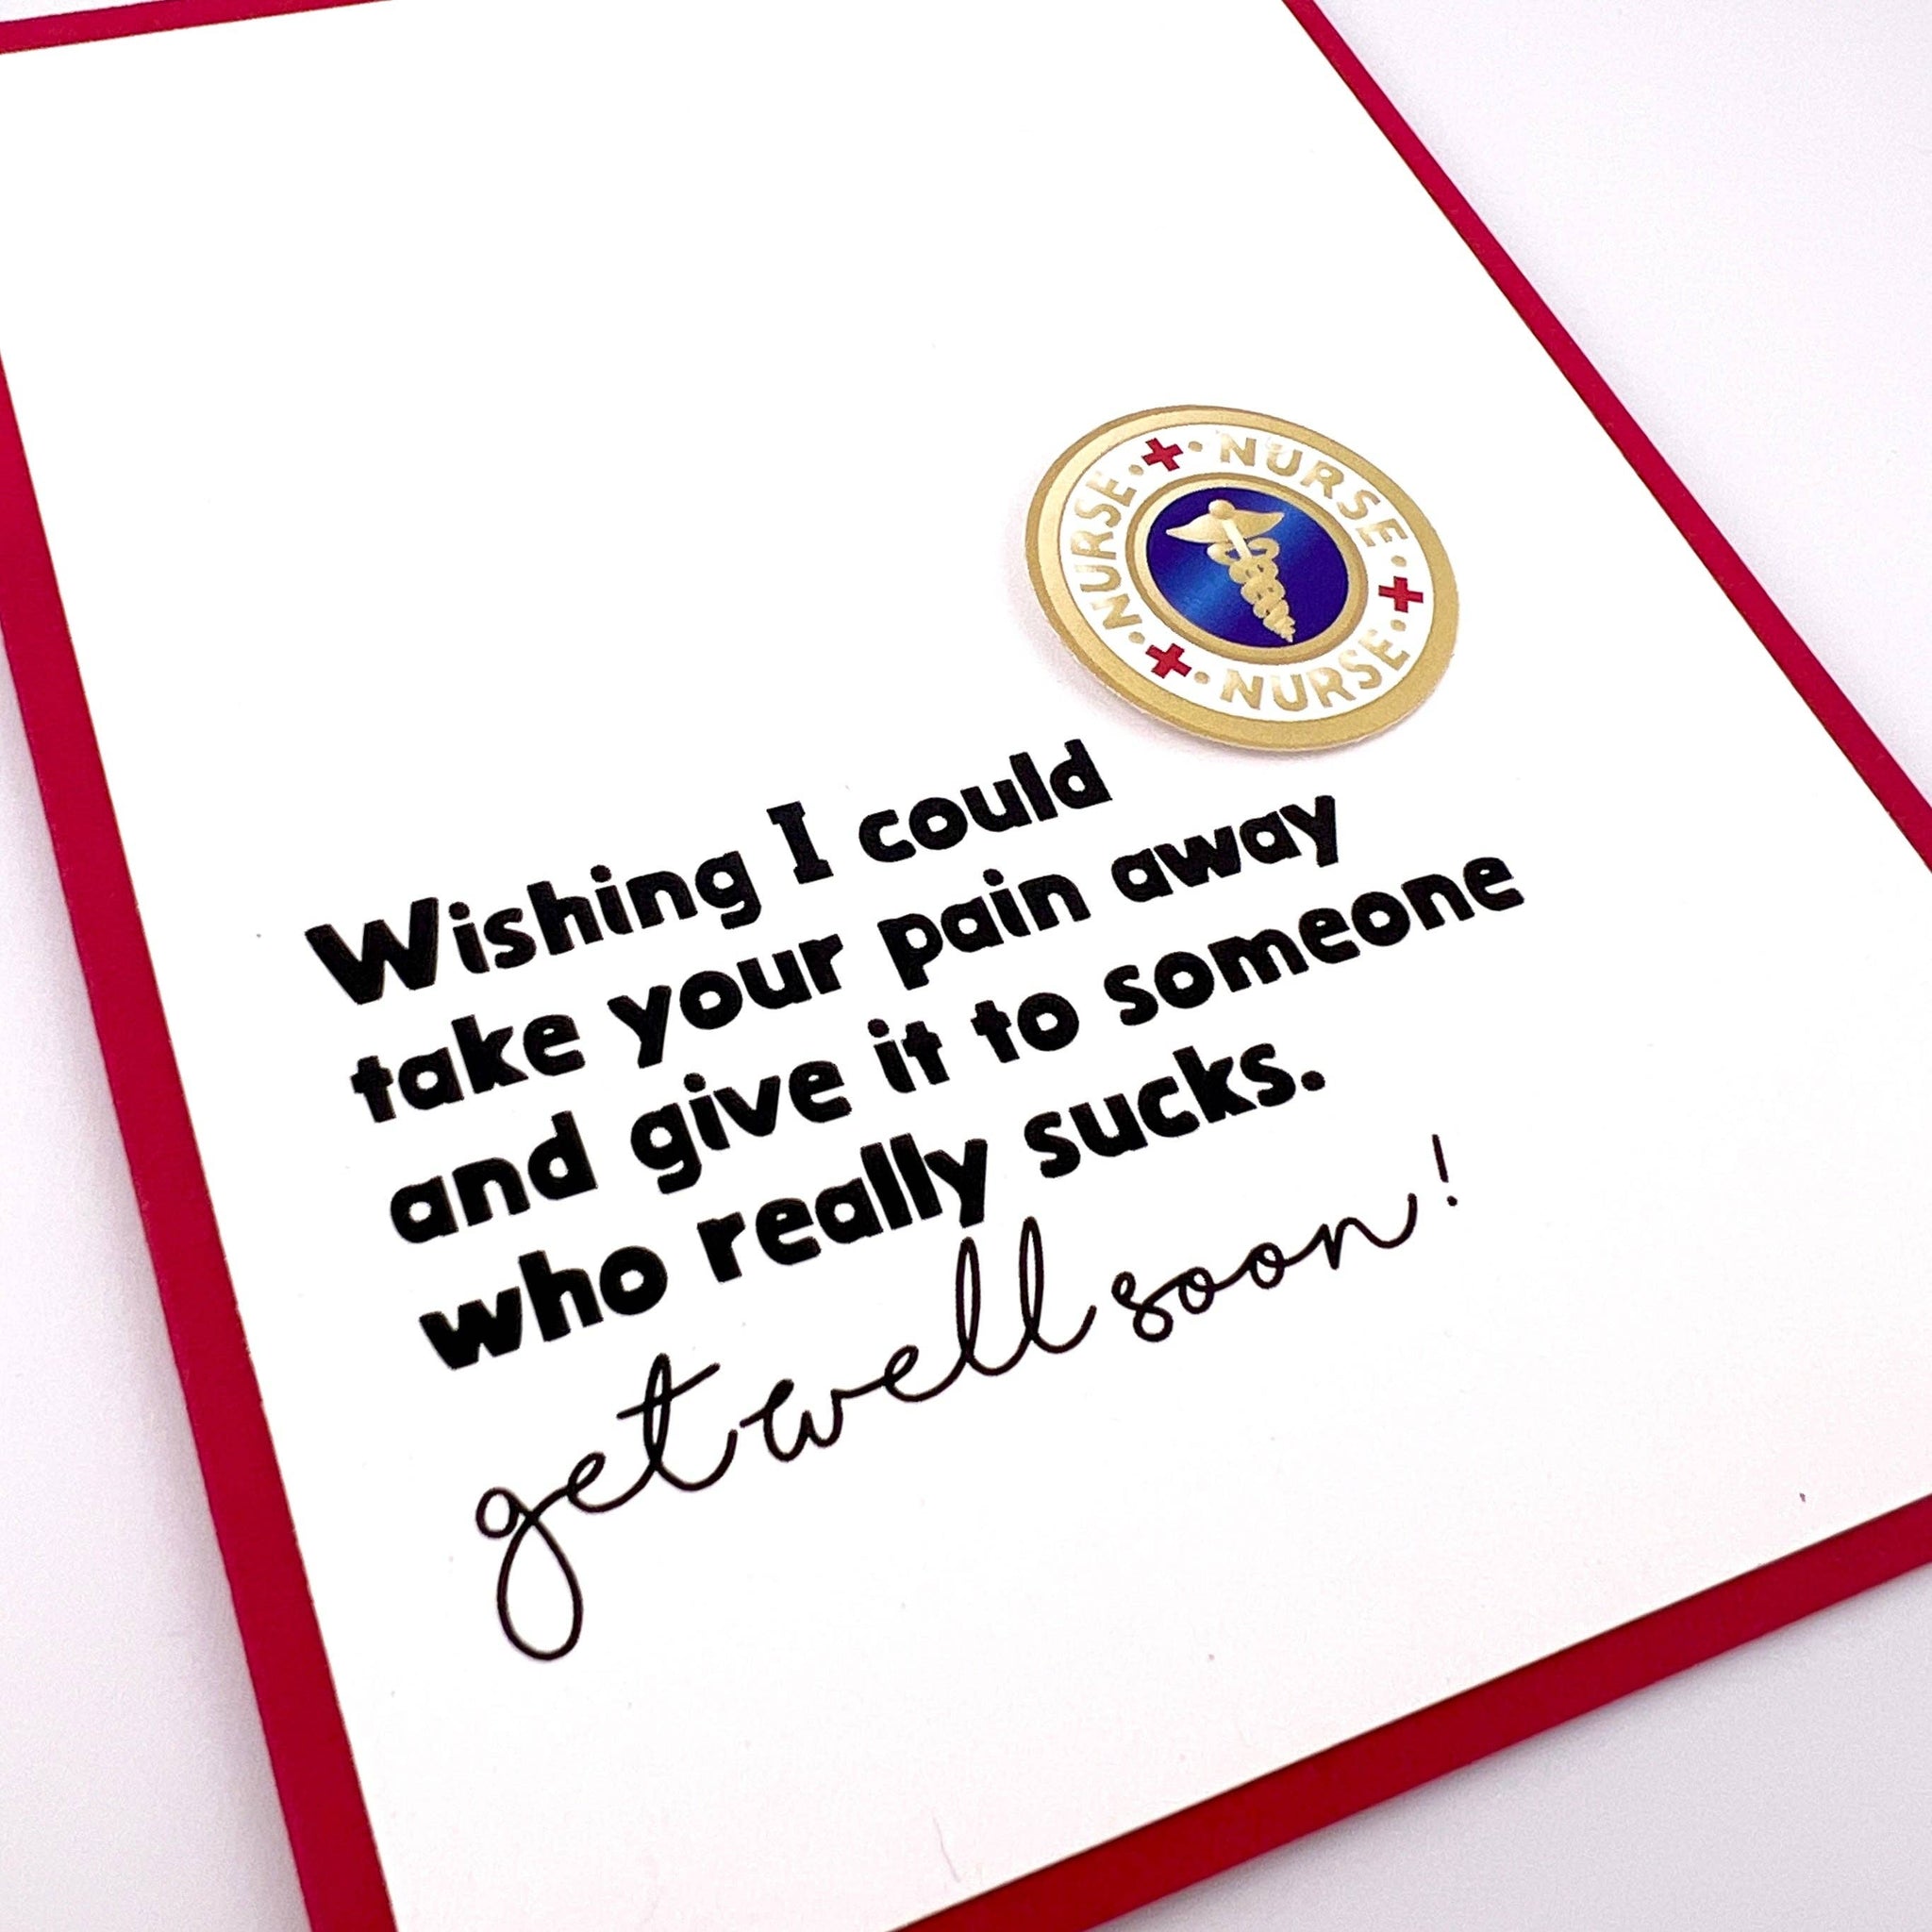 NURSE + NURSE + NURSE +
Wishing I could
take your pain away
and give it to someone
who really sucks.
get well soon!